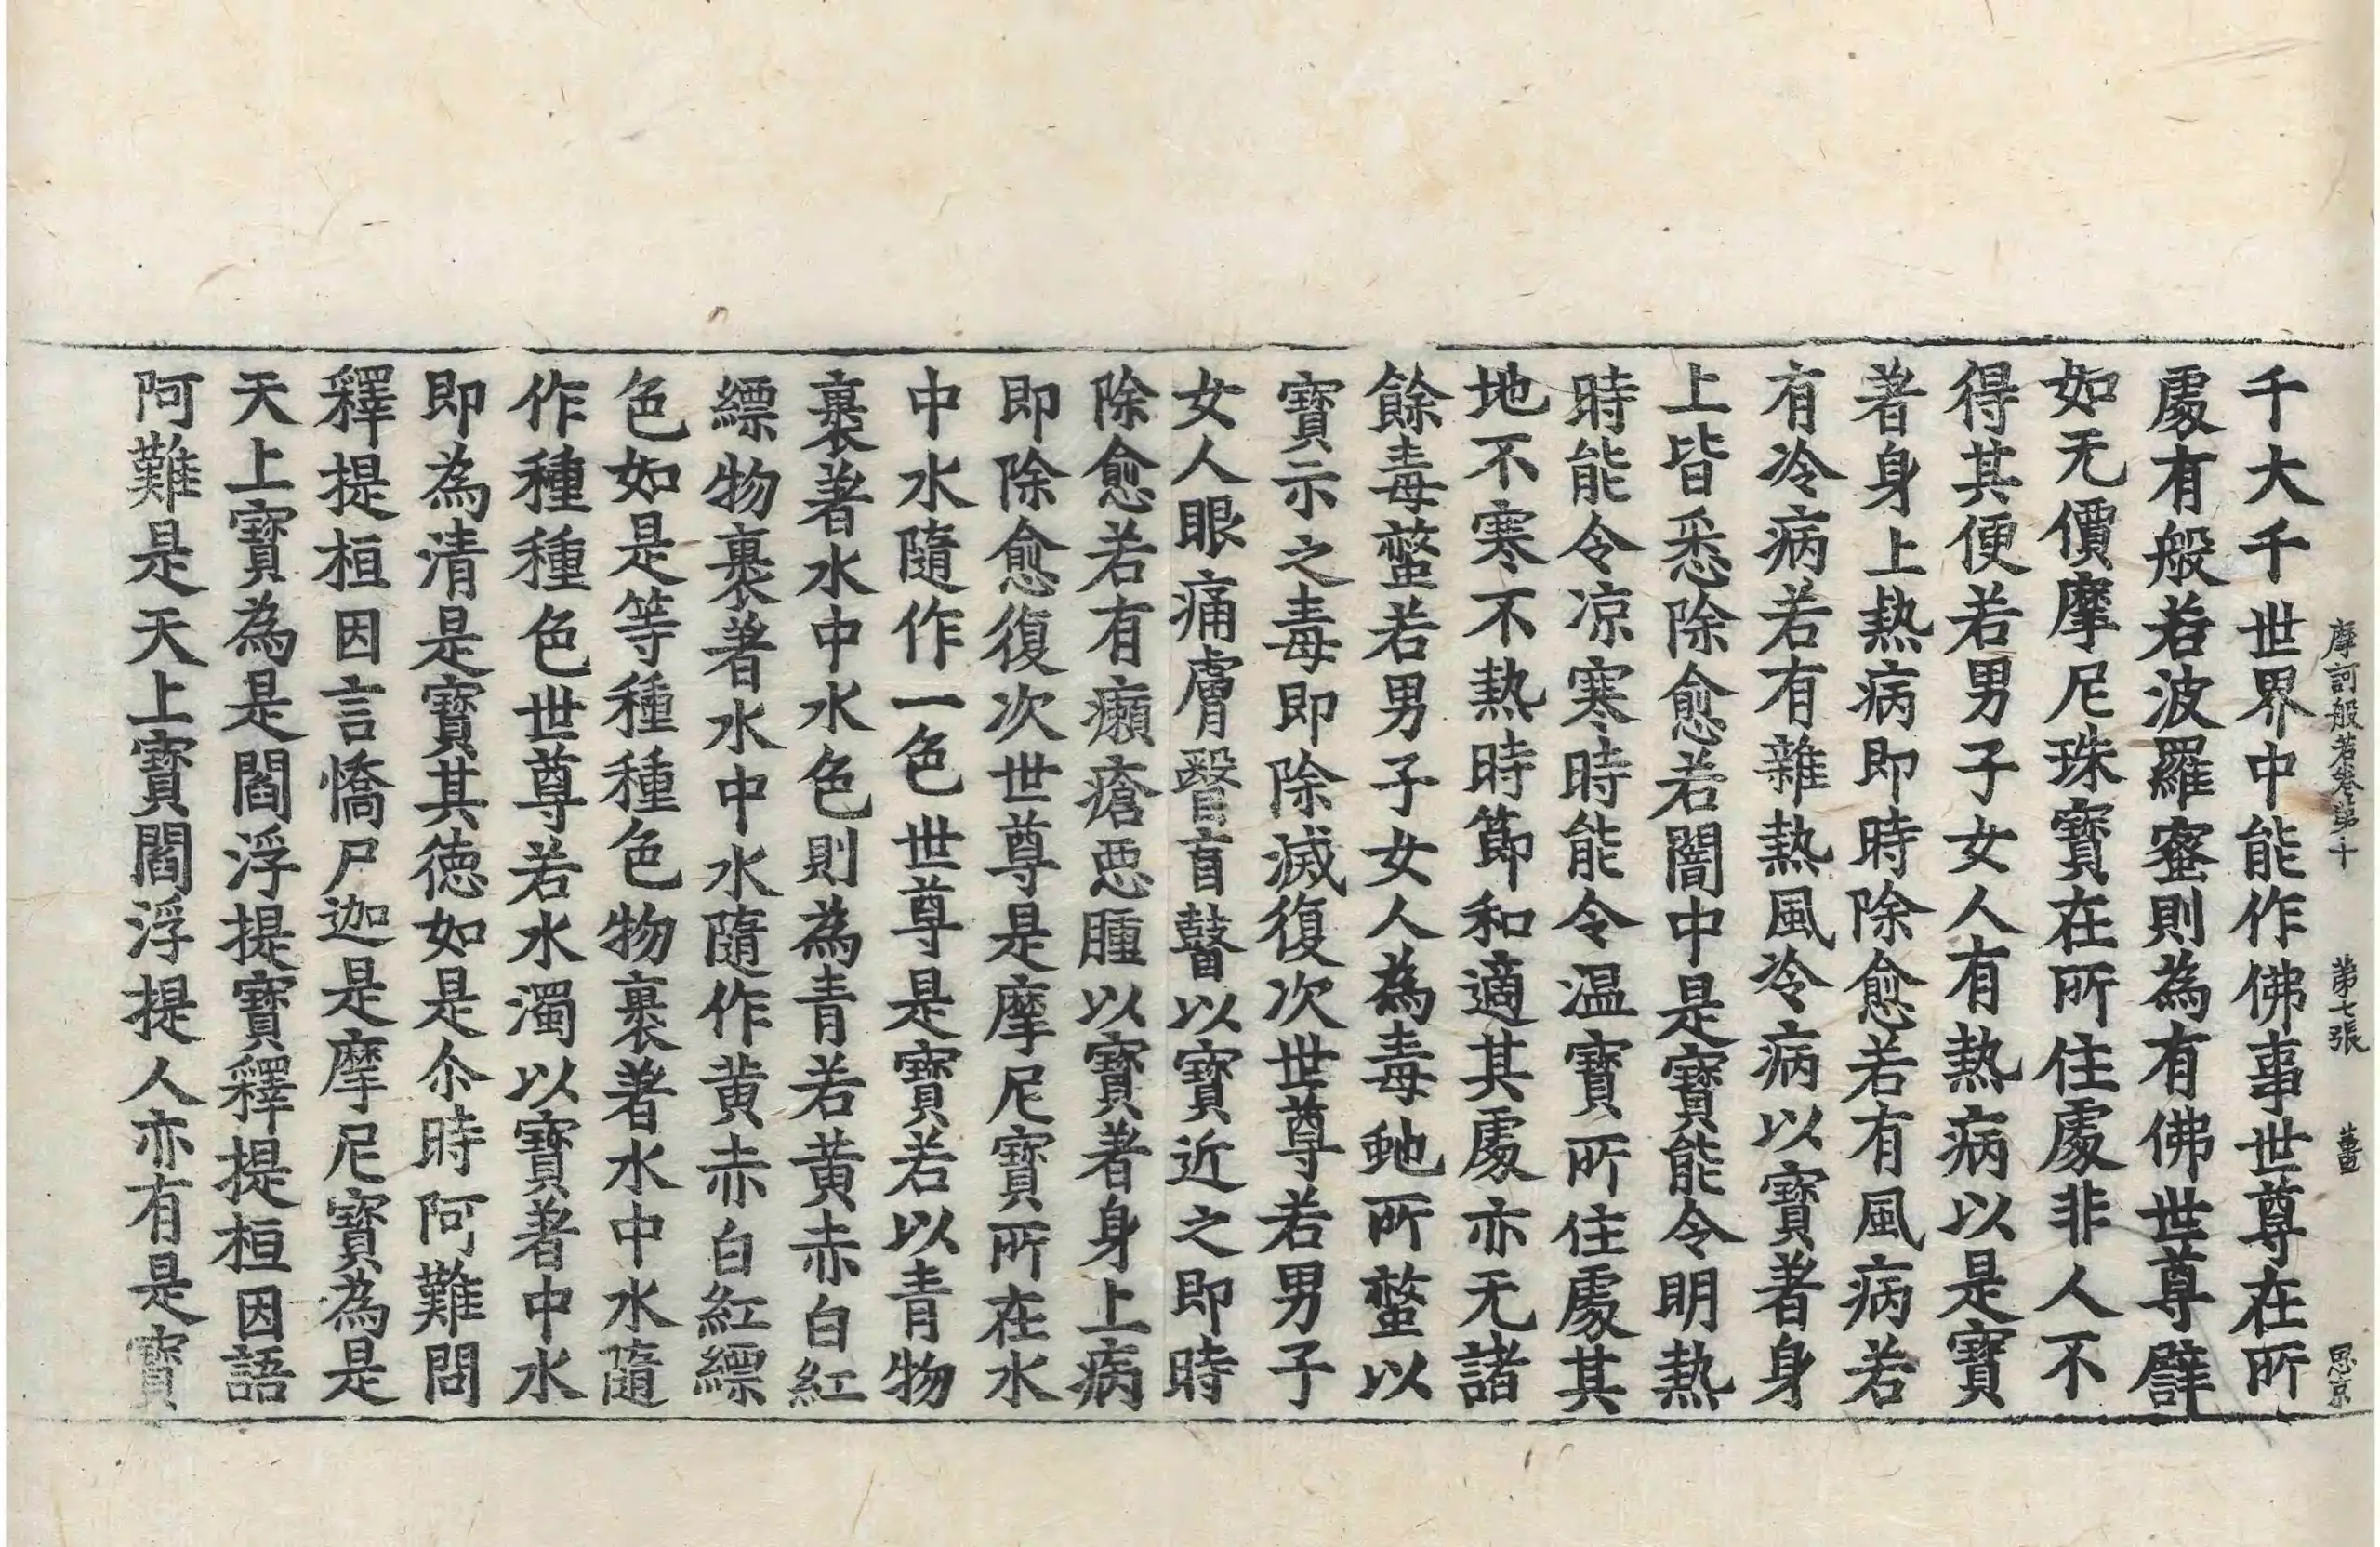 摩訶般若卷第十 第七張 菫 思京
千大千世界中能作佛事世尊在所
處有般若波羅蜜則為有佛世尊譬
如无價摩尼珠寶在所住處非人不
得其便若男子女人有熱病以是寶
著身上熱病即時除愈若有風病若
有冷病若有雜熱風冷病以寶著身
上皆悉除愈若闇中是寶能令明熱
時能令凉寒時能令温寶所住處其
地不寒不熱時節和適其處亦无諸
餘毒螫若男子女人為毒虵所螫以
寶示之毒即除滅復次世尊若男子
女人眼痛膚瞖盲瞽以寶近之即時
除愈若有癩瘡惡腫以寶著身上病
即除愈復次世尊是摩尼寶所在水
中水隨作一色世尊是寶若以青物
裹著水中水色則為青若黄赤白紅
縹物裹著水中水隨作黄赤白紅縹
色如是等種種色物裹著水中水隨
作種種色世尊若水濁以寶著中水
即為清是寶其德如是尒時阿難問
釋提桓因言憍尸迦是摩尼寶為是
天上寶為是閻浮提寶釋提桓因語
阿難是天上寶閻浮提人亦有是寶